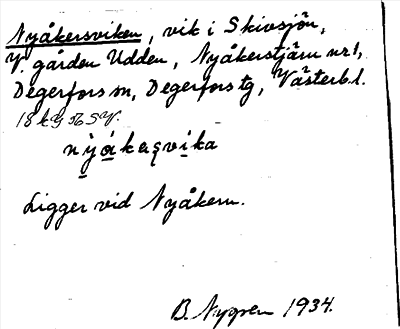 Nyåkersviken, vik i Skivsjön,
V. gården Udden, Nyåkerstjärn nr 1,
Degerfors sn, Degerfors tg, Västerb. l.
nỳákeʂvíka
Ligger vid Nyåkern.
B. Nygren 1934.